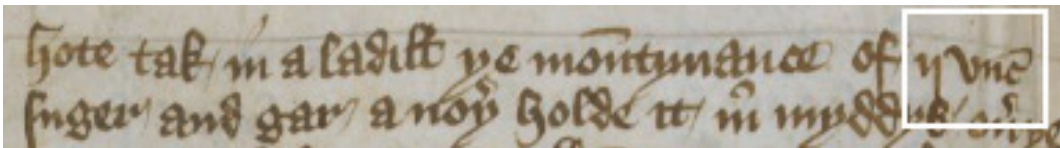 hote tak in a ladill ye mōntynance of ij vnc̄
suger and gar a noyͬ holde it in myddys